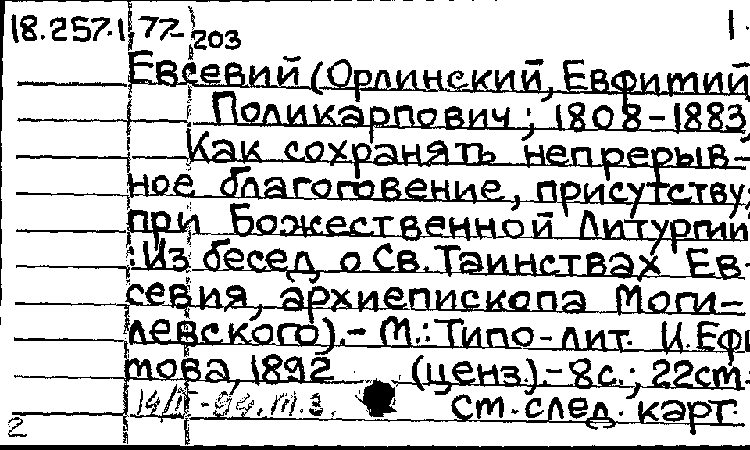 18.257.1.77 203 1.
Евсевий (Орлинский, Евфитий
Поликарпович; 1808-1883,
Как сохранять непрерыв-
ное благоговение, присутству
при Божественной Литургии
: Из бесед о Св. Таинствах Ев-
севия, архиепископа Моги-
левского).- М.: Типо-лит. И.Ефи
мова, 1892 (ценз.).- 8с.; 22ст.
ст.след.карт.
2